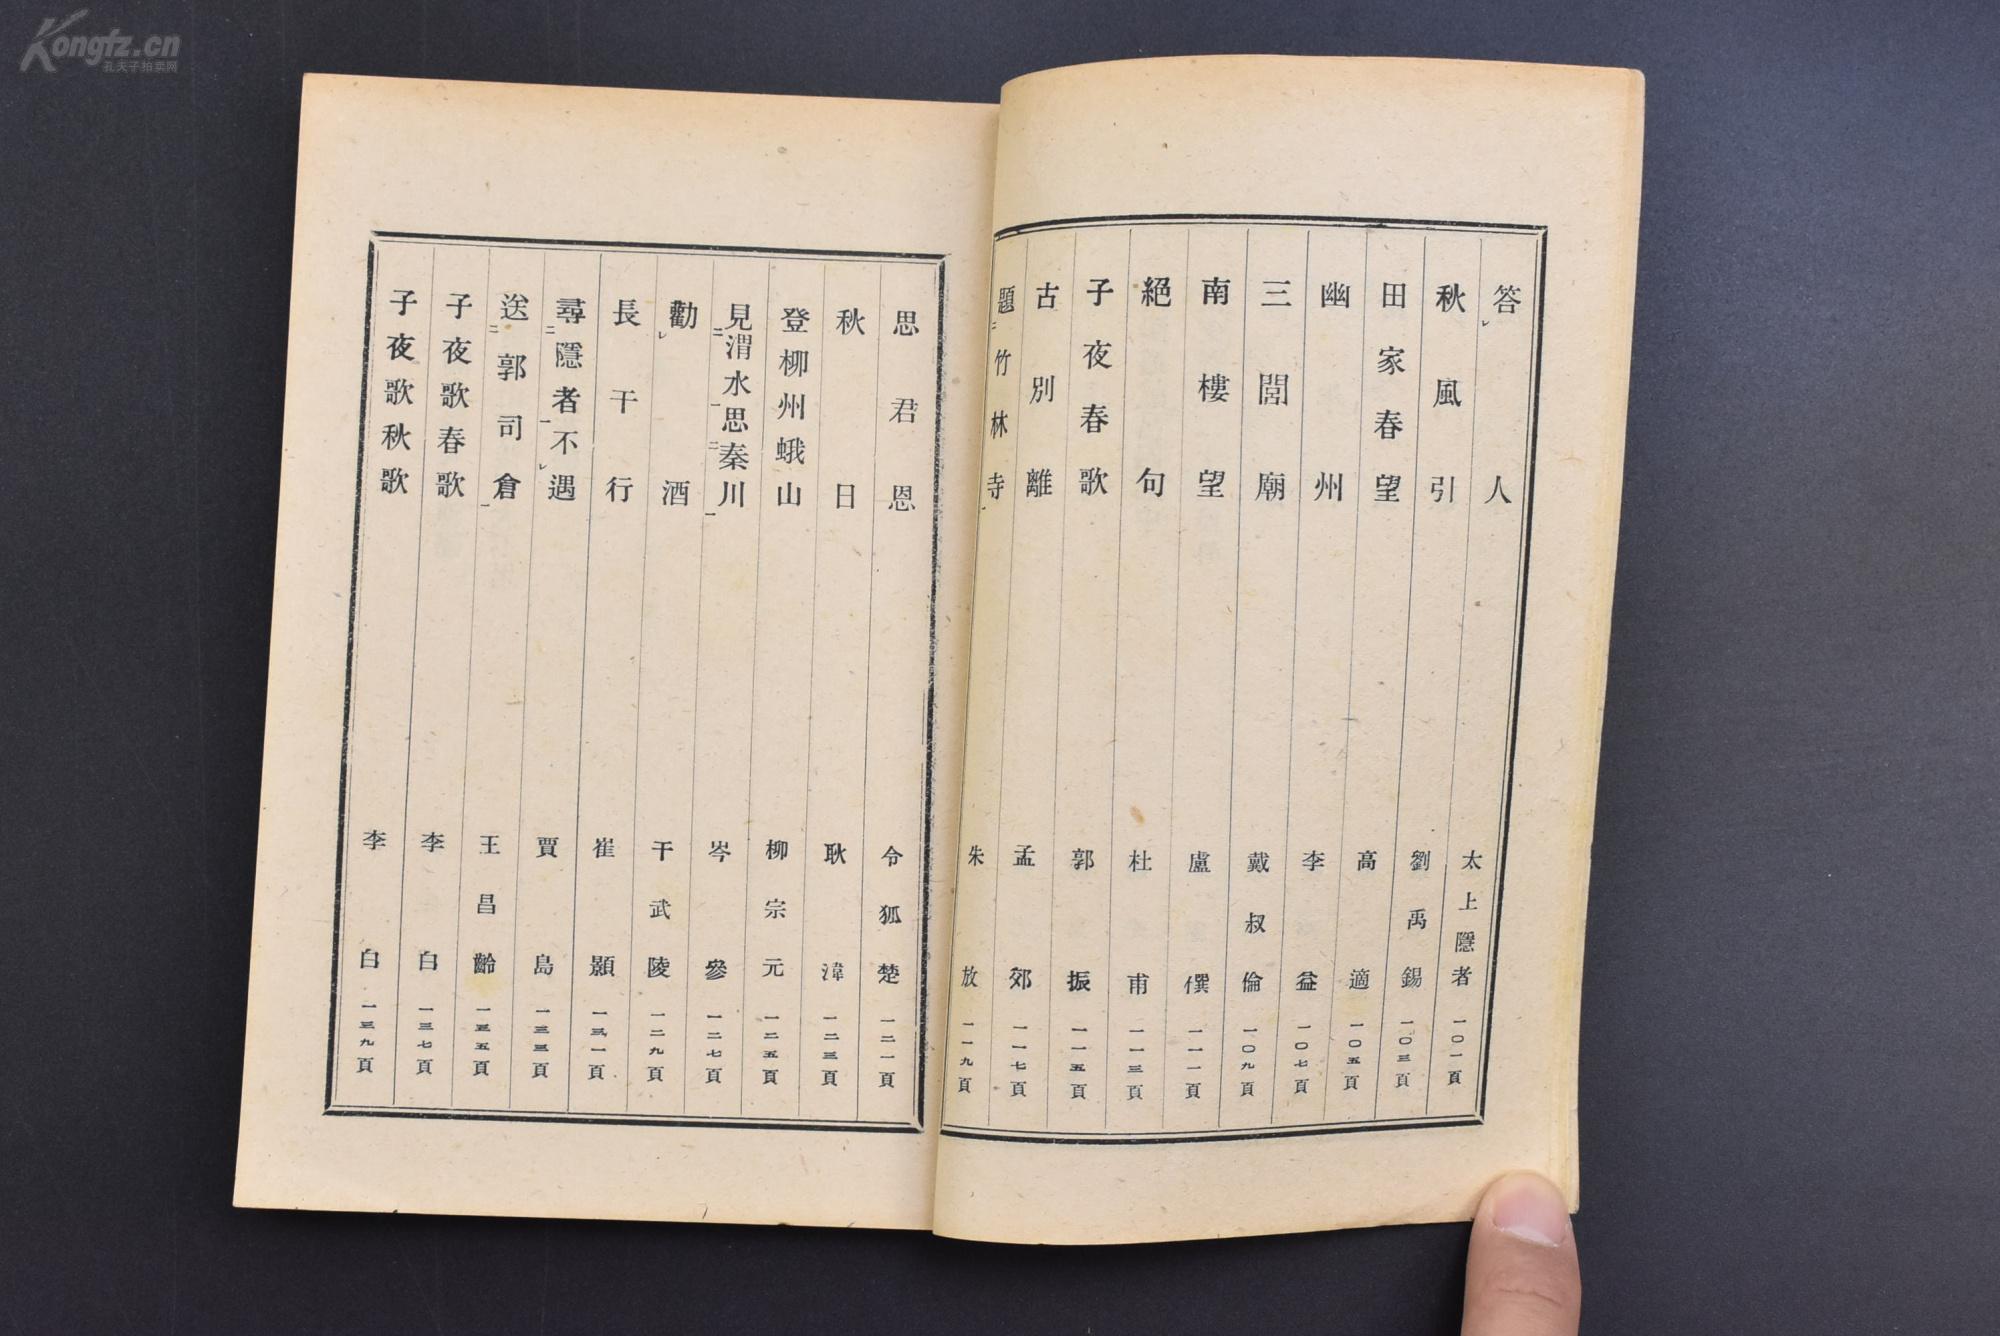 Kongfz.cn
孔夫子拍卖网
答レ人 太上隱者 一〇一頁
秋風引 劉禹錫 一〇三頁
田家春望 高適 一〇五頁
幽州 李益 一〇七頁
三閭廟 戴叔倫 一〇九頁
南樓望 盧僎 一一一頁
絕句 杜甫 一一三頁
子夜春歌 郭振 一一五頁
古別離 孟郊 一一七頁
題二竹林寺一 朱放 一一九頁
思君恩 令狐楚 一二一頁
秋日 耿湋 一二三頁
登柳州蛾山 柳宗元 一二五頁
見二渭水一思二秦川一 岑參 一二七頁
勸レ酒 干武陵 一二九頁
長干行 崔顥 一三一頁
尋二隱者一不レ遇 賈島 一三三頁
送二郭司倉一 王昌齡 一三五頁
子夜歌春歌 李白 一三七頁
子夜歌秋歌 李白 一三九頁